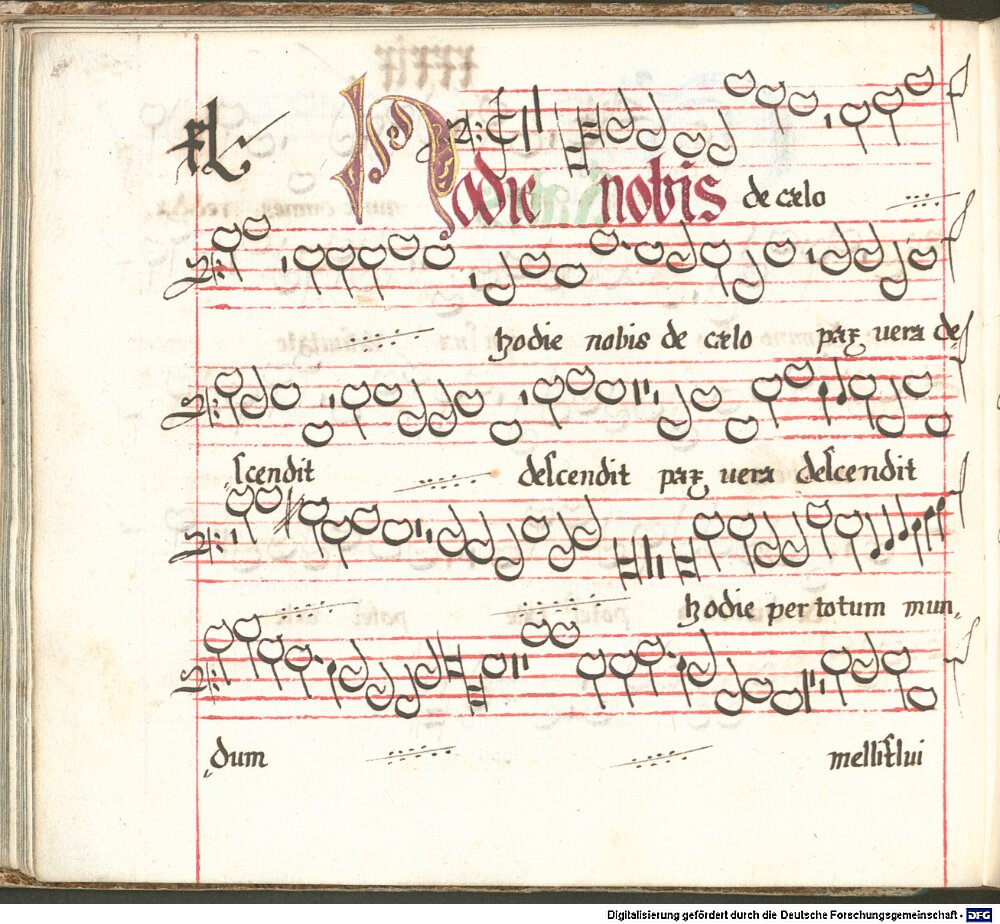 Hodie nobis de cælo
hodie nobis de cælo pax uera de,
scendit descendit pax uera descendit
hodie per totum mun,
dum melliflui
Digitalisierung gefördert durch die Deutsche Forschungsgemeinschaft - DFG